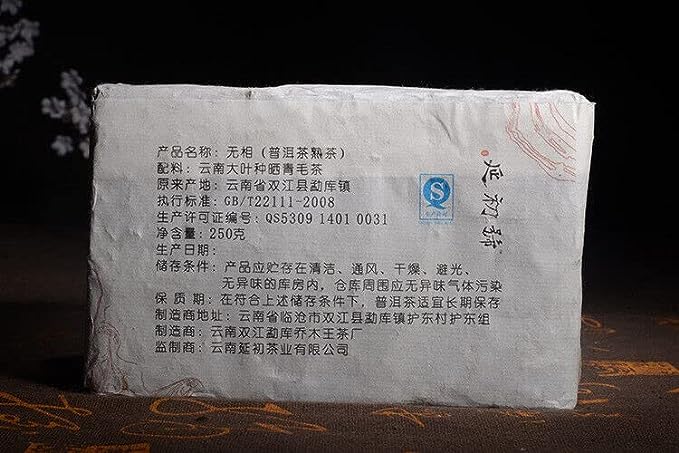 产品名称：无相（普洱茶熟茶）
配料：云南大叶种晒青毛茶
原来产地：云南省双江县勐库镇
执行标准：GB/T22111-2008
生产许可证编号：QS5309 1401 0031
净含量：250克
生产日期：
储存条件：产品应贮存在清洁、通风、干燥、避光、
无异味的库房内，仓库周围应无异味气体污染
保质期：在符合上述储存条件下，普洱茶适宜长期保存
制造商地址：云南省临沧市双江县勐库镇护东村护东组
制造商：云南双江勐库乔木王茶厂
监制商：云南延初茶业有限公司
延初號